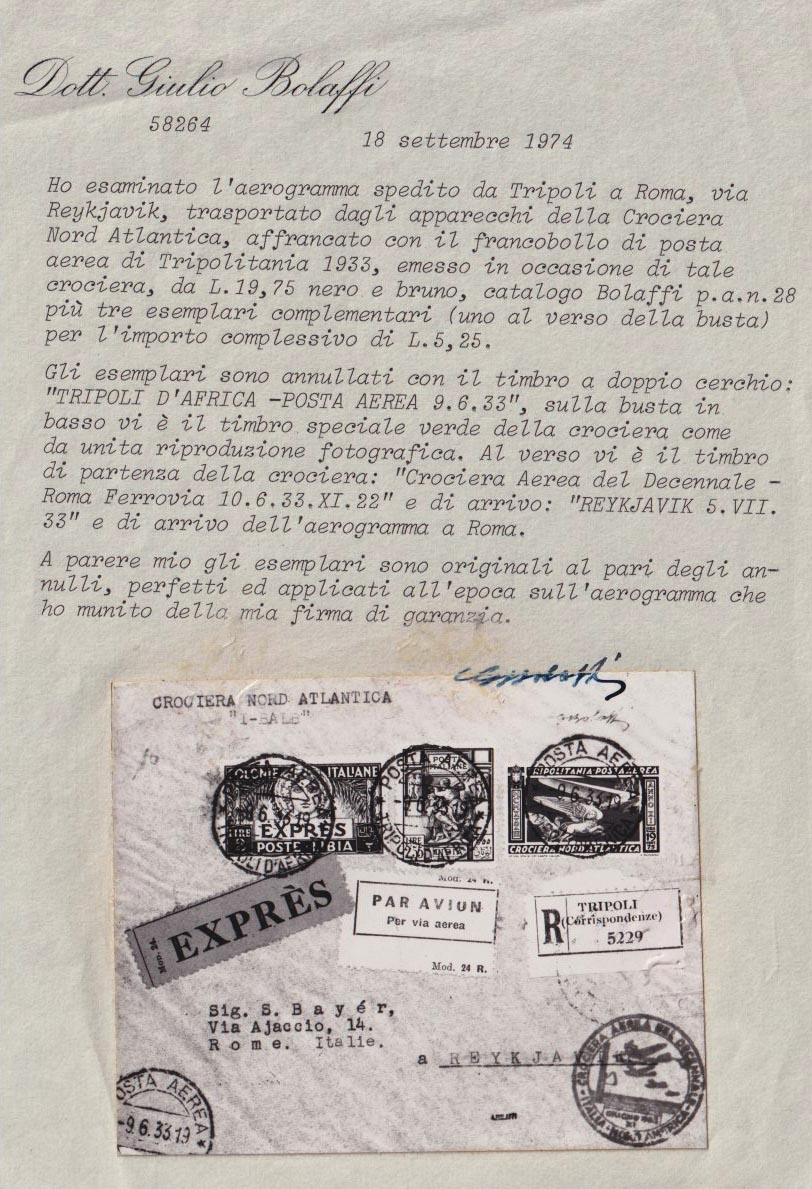 Dott. Giulio Bolaffi
58264
18 settembre 1974
Ho esaminato l'aerogramma spedito da Tripoli a Roma, via
Reykjavik, trasportato dagli apparecchi della Crociera
Nord Atlantica, affrancato con il francobollo di posta
aerea di Tripolitania 1933, emesso in occasione di tale
crociera, da L.19,75 nero e bruno, catalogo Bolaffi p.a.n.28
più tre esemplari complementari (uno al verso della busta)
per l'importo complessivo di L.5,25.
Gli esemplari sono annullati con il timbro a doppio cerchio:
"TRIPOLI D'AFRICA -POSTA AEREA 9.6.33", sulla busta in
basso vi è il timbro speciale verde della crociera come
da unita riproduzione fotografica. Al verso vi è il timbro
di partenza della crociera: "Crociera Aerea del Decennale -
Roma Ferrovia 10.6.33.XI.22" e di arrivo: "REYKJAVIK 5.VII.
33" e di arrivo dell'aerogramma a Roma.
A parere mio gli esemplari sono originali al pari degli an-
nulli, perfetti ed applicati all'epoca sull'aerogramma che
ho munito della mia firma di garanzia.
CROCIERA NORD ATLANTICA
"I-BALB"
POSTA AEREA
POSTA AEREA
POSTA AEREA
COLONIE ITALIANE
TRIPOLITANIA POSTA AEREA
9.6.33 19
LIRE
EXPRES
POSTE LIBIA
CROCIERA NORD ATLANTICA
Mod. 24 R.
EXPRÈS
Mod. 24.
PAR AVION
Per via aerea
Mod. 24 R.
R
TRIPOLI
(Corrispondenze)
5229
Sig. S. Bayér,
Via Ajaccio, 14.
Rome. Italie.
a REYKJAV
CROCIERA AEREA DEL DECENNALE
POSTA AEREA
-9.6.33 19